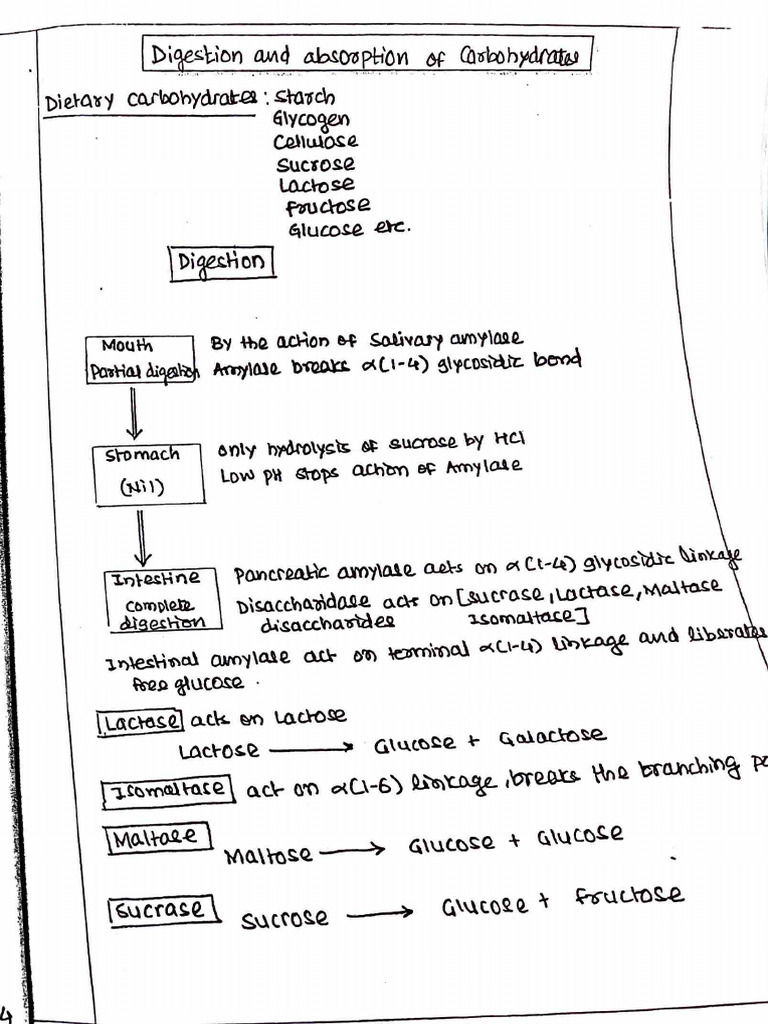 Digestion and absorption of Carbohydrates
Dietary carbohydrates: Starch
Glycogen
Cellulose
Sucrose
Lactose
Fructose
Glucose etc.
Digestion
Mouth
Partial digestion
By the action of Salivary amylase
Amylase breaks α(1-4) glycosidic bond
Stomach
(Nil)
only hydrolysis of sucrose by HCl
Low PH stops action of Amylase
Intestine
complete
digestion
Pancreatic amylase acts on α(1-4) glycosidic linkage
Disaccharidase acts on [sucrase, Lactase, Maltase
disaccharides Isomaltase]
Intestinal amylase act on terminal α(1-4) linkage and liberates
free glucose.
Lactase acts on Lactose
Lactose → Glucose + Galactose
Isomaltase act on α(1-6) linkage, breaks the branching po
Maltase
Maltose → Glucose + Glucose
Sucrase
Sucrose → Glucose + Fructose
4